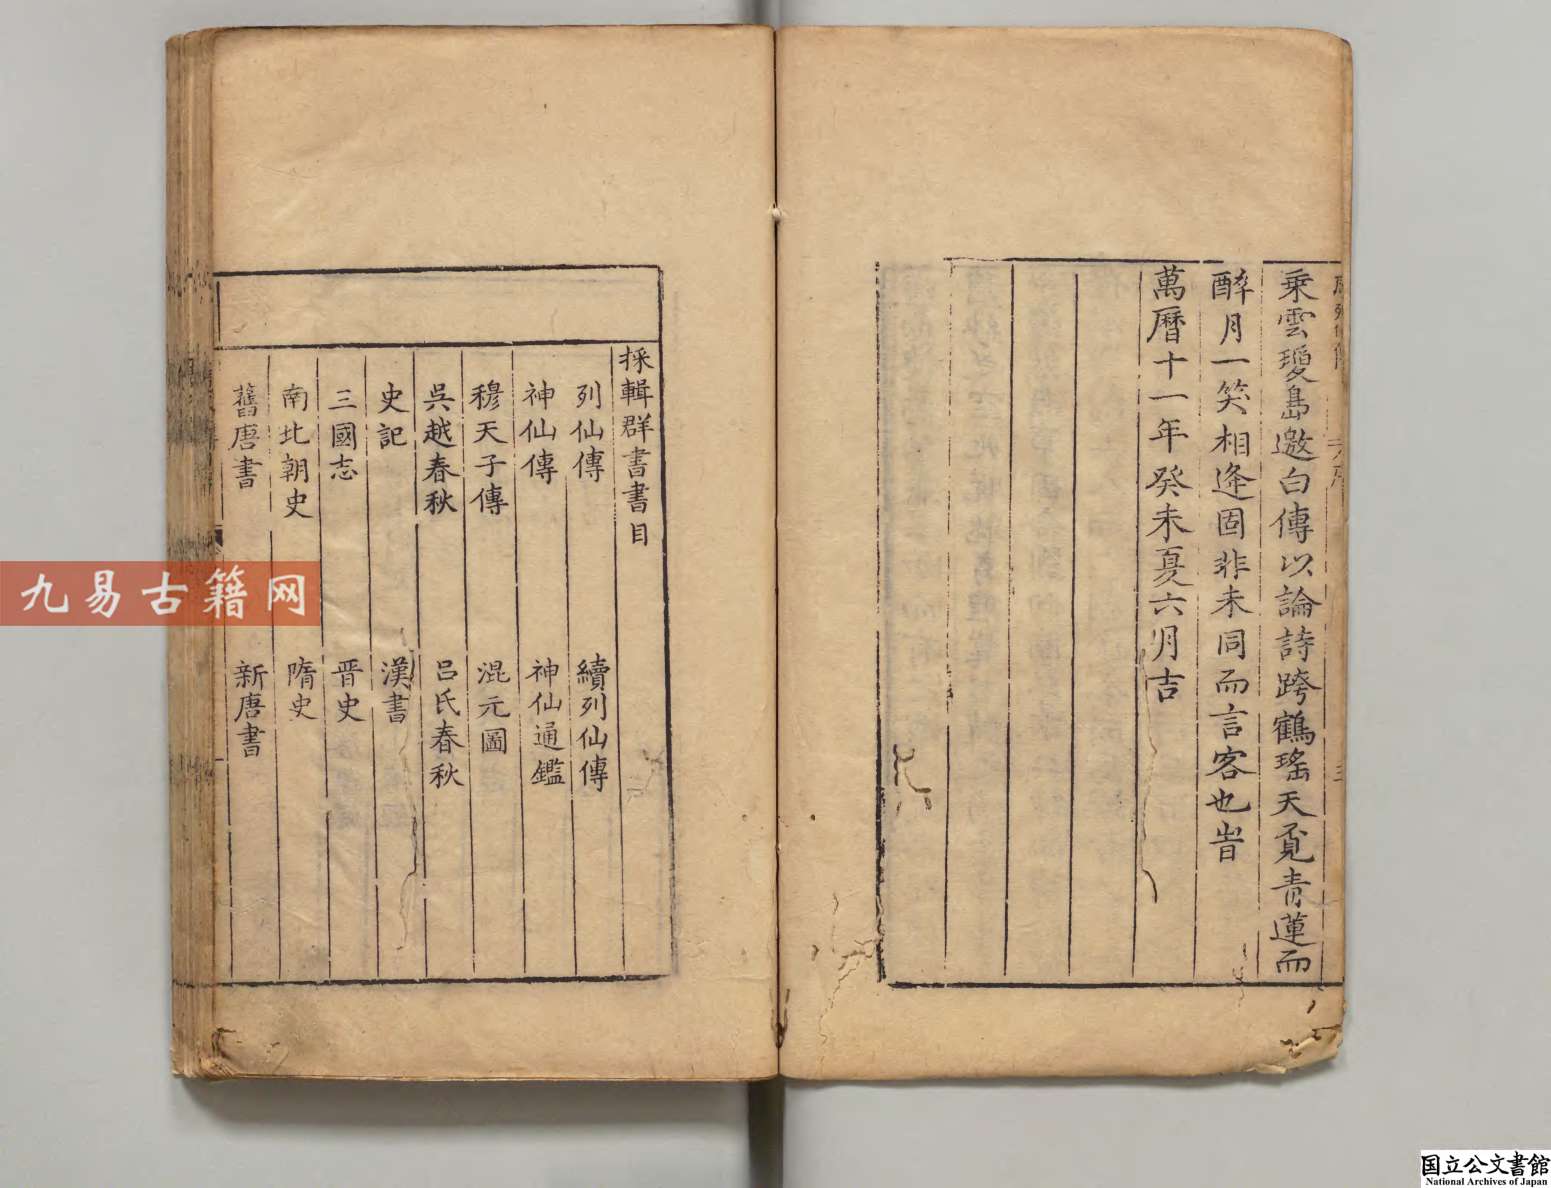 乗雲瓊島邀白傳以論詩跨鶴瑤天覓青蓮而
醉月一笑相逢固非未同而言客也旹
萬曆十一年癸未夏六月吉
採輯群書書目
列仙傳 續列仙傳
神仙傳 神仙通鑑
穆天子傳 混元圖
呉越春秋 呂氏春秋
史記 漢書
三國志 晋史
南北朝史 隋史
舊唐書 新唐書
九易古籍网
国立公文書館
National Archives of Japan